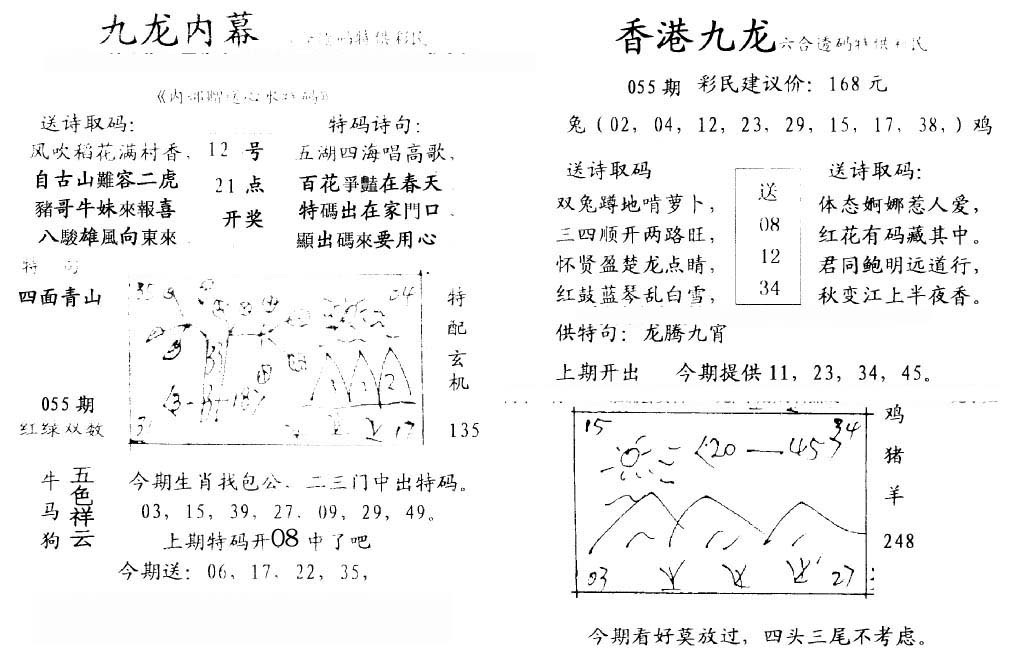 九龙内幕 透码特供彩民
《内部赠送心水特码》
送诗取码：
风吹稻花满村香，
自古山難容二虎
豬哥牛妹來報喜
八駿雄風向東來
12 号
21 点
开奖
特码诗句：
五湖四海唱高歌，
百花爭豔在春天
特碼出在家門口
顯出碼來要用心
特 句
四面青山
055 期
红绿双数
35
04
31
17
特配玄机
135
牛
马
狗
五色祥云
今期生肖找包公、二三门中出特码。
03，15，39，27，09，29，49。
上期特码开08 中了吧
今期送：06，17，22，35，
香港九龙六合透码特供彩民
055 期 彩民建议价：168 元
兔（02，04，12，23，29，15，17，38，）鸡
送诗取码
双兔蹲地啃萝卜，
三四顺开两路旺，
怀贤盈楚龙点睛，
红鼓蓝琴乱白雪，
送
08
12
34
送诗取码：
体态婀娜惹人爱，
红花有码藏其中。
君同鲍明远道行，
秋变江上半夜香。
供特句：龙腾九宵
上期开出 今期提供 11，23，34，45。
15
20—45
34
03
27
鸡
猪
羊
248
今期看好莫放过，四头三尾不考虑。